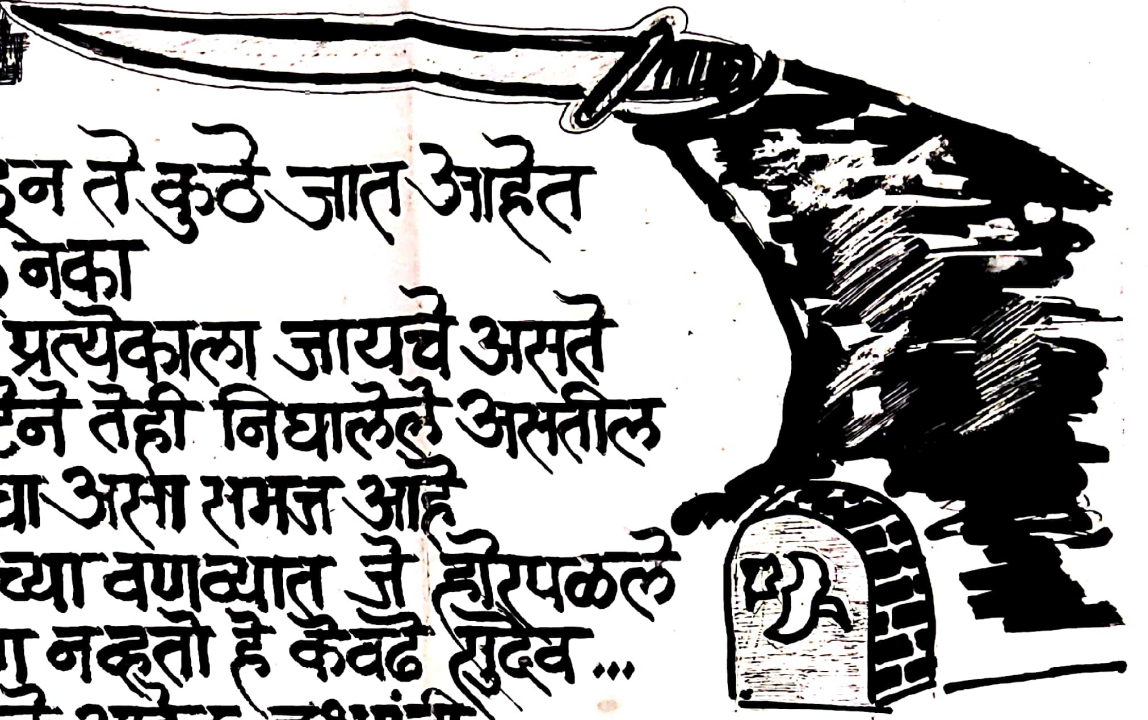 ते कुठे जात आहेत
नका
प्रत्येकाला जायचे असते
तेही निघालेले असतील
असा समज आहे
वणव्यात जे होरपळले
नव्हतो हे केवढे सुदैव ...